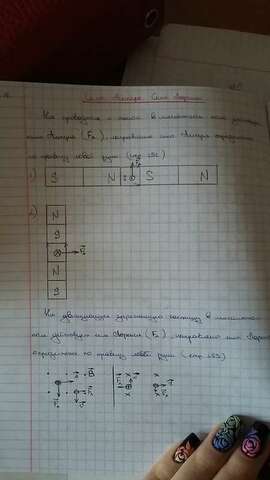 Сила Ампера. Сила Лоренца
На проводник с током в магнитном поле действует
сила Ампера (Fа), направление силы Ампера определяется
по правилу левой руки (стр 192)
1) S N S N
2) N
S
F
N
S
На движущуюся заряженную частицу в магнитном
поле действует сила Лоренца (Fл), направление силы Лоренца
определяется по правилу левой руки (стр 193)